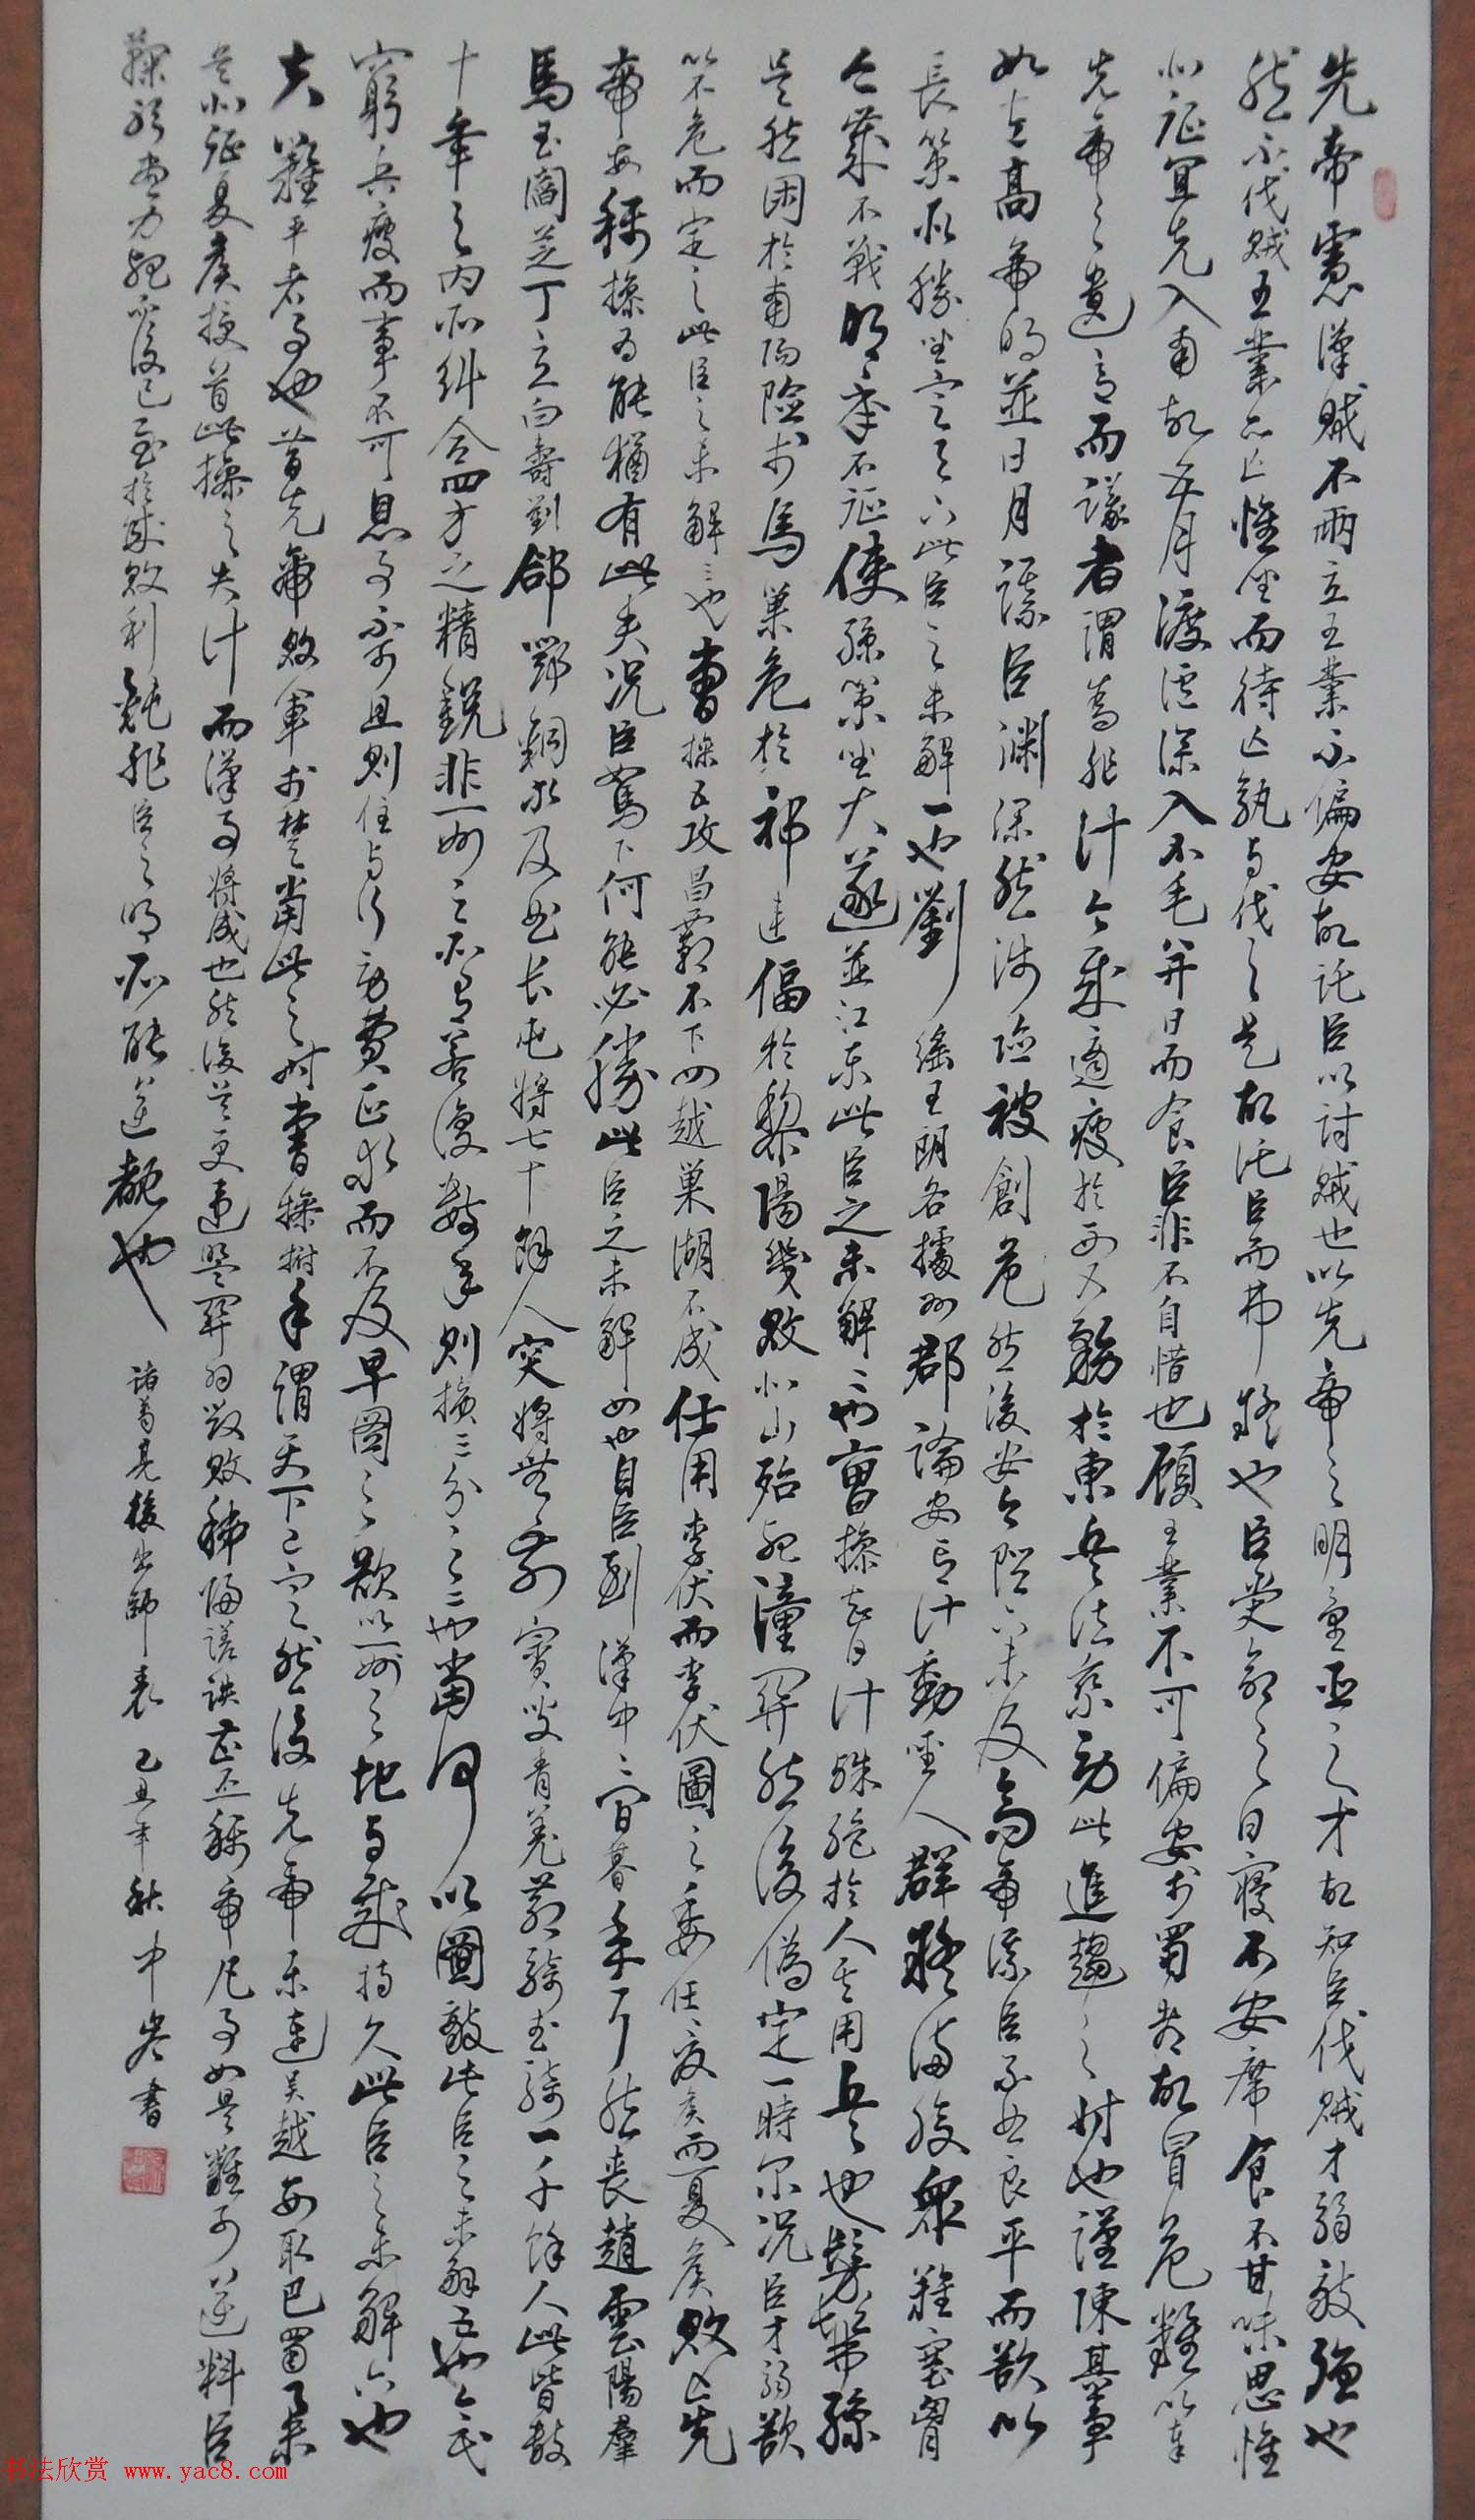 先帝慮漢賊不兩立王業不偏安故託臣以討賊也以先帝之明量臣之才故知臣伐賊才弱敵強也
然不伐賊王業亦亡惟坐而待亡孰與伐之是故託臣而弗疑也臣受命之日寢不安席食不甘味思惟
北征宜先入南故五月渡瀘深入不毛并日而食臣非不自惜也顧王業不可偏安於蜀都故冒危難以奉
先帝之遺言而議者謂為非計今賊適疲於西又務於東兵法乘勞此進趨之時也謹陳其事
如左高帝明並日月謀臣淵深然涉險被創危然後安今陛下未及高帝謀臣不如良平而欲以
長策取勝坐定天下此臣之未解一也劉繇王朗各據州郡論安言計動引聖人群疑滿腹眾難塞胸
今歲不戰明年不征使孫策坐大遂並江東此臣之未解二也曹操智計殊絕於人其用兵也髣髴孫
吳然困於南陽險於烏巢危於祁連偪於黎陽幾敗北山殆死潼關然後偽定一時尔況臣才弱欲
以不危而定之此臣之未解三也曹操五攻昌霸不下四越巢湖不成任用李伏而李伏圖之委任夏侯而夏侯敗亡先
帝每稱操為能猶有此失況臣駑下何能必勝此臣之未解四也自臣到漢中中間暮年耳然喪趙雲陽群
馬玉閻芝丁立白壽劉郃鄧銅等及曲長屯將七十餘人突將無前賨叟青羌散騎武騎一千餘人此皆數
十年之內所糾合四方之精銳非一州之所有若復數年則損三分之二也當何以圖敵此臣之未解五也今民
窮兵疲而事不可息事不可息則住與行勞費正等而不及早圖之欲以一州之地與賊持久此臣之未解六也
夫難平者事也昔先帝敗軍於楚當此之時曹操拊手謂天下已定然後先帝東連吳越西取巴蜀舉兵
北征夏侯授首此操之失計而漢事將成也然後吳更違盟關羽毀敗秭歸蹉跌曹丕稱帝凡事如是難可逆料臣
鞠躬盡力死而後已至於成敗利鈍非臣之明所能逆覩也
諸葛亮後出師表 己丑年秋中
書法欣赏 www.yac8.com